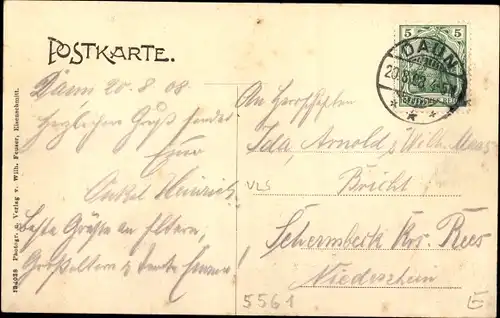 POSTKARTE.
5 5
DAUN
20.8.08
DEUTSCHES REICH
Daun 20.8.08
Herzlichen Gruß sendet
Euer
Onkel Heinrich
Beste Grüße an Eltern,
Großeltern & Tante Emma!
An Herrschaften
Ida, Arnold & Wilh. Maas
Bricht
Schermbeck Krs. Rees
Niederrhein
VLS
5561
Photogr. & Verlag v. Wilh. Fenser, Eisenschmitt.